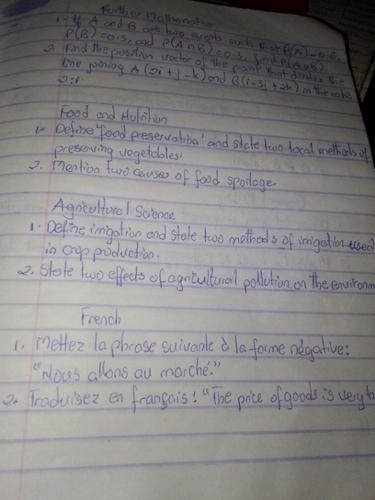 Further Mathematics
1. If A and B are two events such that P(A) = 0.6,
P(B) = 0.5, and P(A∩B) = 0.3, find P(A∪B).
2. Find the position vector of the point that divides the
line joining A (2i + j - k) and B(i - 3j + 2k) in the ratio
2:1.
Food and Nutrition
1. Define 'food preservation' and state two local methods of
preserving vegetables.
2. Mention two causes of food spoilage
Agricultural Science
1. Define irrigation and state two methods of irrigation used
in crop production.
2. State two effects of agricultural pollution on the environm
French
1. Mettez la phrase suivante à la forme négative:
"Nous allons au marché."
2. Traduisez en français: "The price of goods is very h